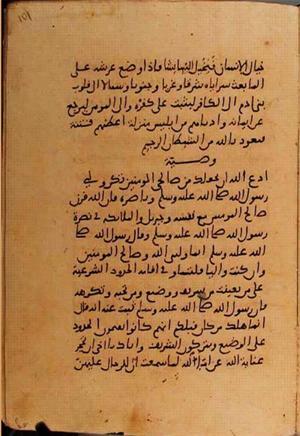 خيال الانسان فيتخيل انها شا فاذا وضع عرشه على
الما بعث سراياه شرقا وغربا وجنوبا وشمالا الى قلوب
بني ادم الى الكافر ليثبت على كفره والى المومن ليرجع
عن ايمانه وادناهم من ابليس منزلة اعظمهم فتنة
فنعوذ بالله من الشيطان الرجيم
وصية
ادع الله ان يجعلك من صالحي المومنين تكن ولي
رسول الله صلى الله عليه وسلم وناصره فان الله قرن
صالح المومنين مع نفسه وجبريل والملائكة في نصرة
رسول الله صلى الله عليه وسلم وقال رسول الله صلى
الله عليه وسلم انما وليي الله وصالح المومنين
وان كنت واليا فلتساوي في اقامة الحدود الشرعية
على من تعينت من شريف ووضيع ومن تحبه وتكرهه
فان رسول الله صلى الله عليه وسلم ثبت عنه انه قال
انما هلك من كان قبلكم انهم كانوا يقيمون الحدود
على الوضيع ويتركون الشريف واياك يا اخي ان تحجر
عناية الله عن اماء الله لما سمعت ان للرجال عليهن